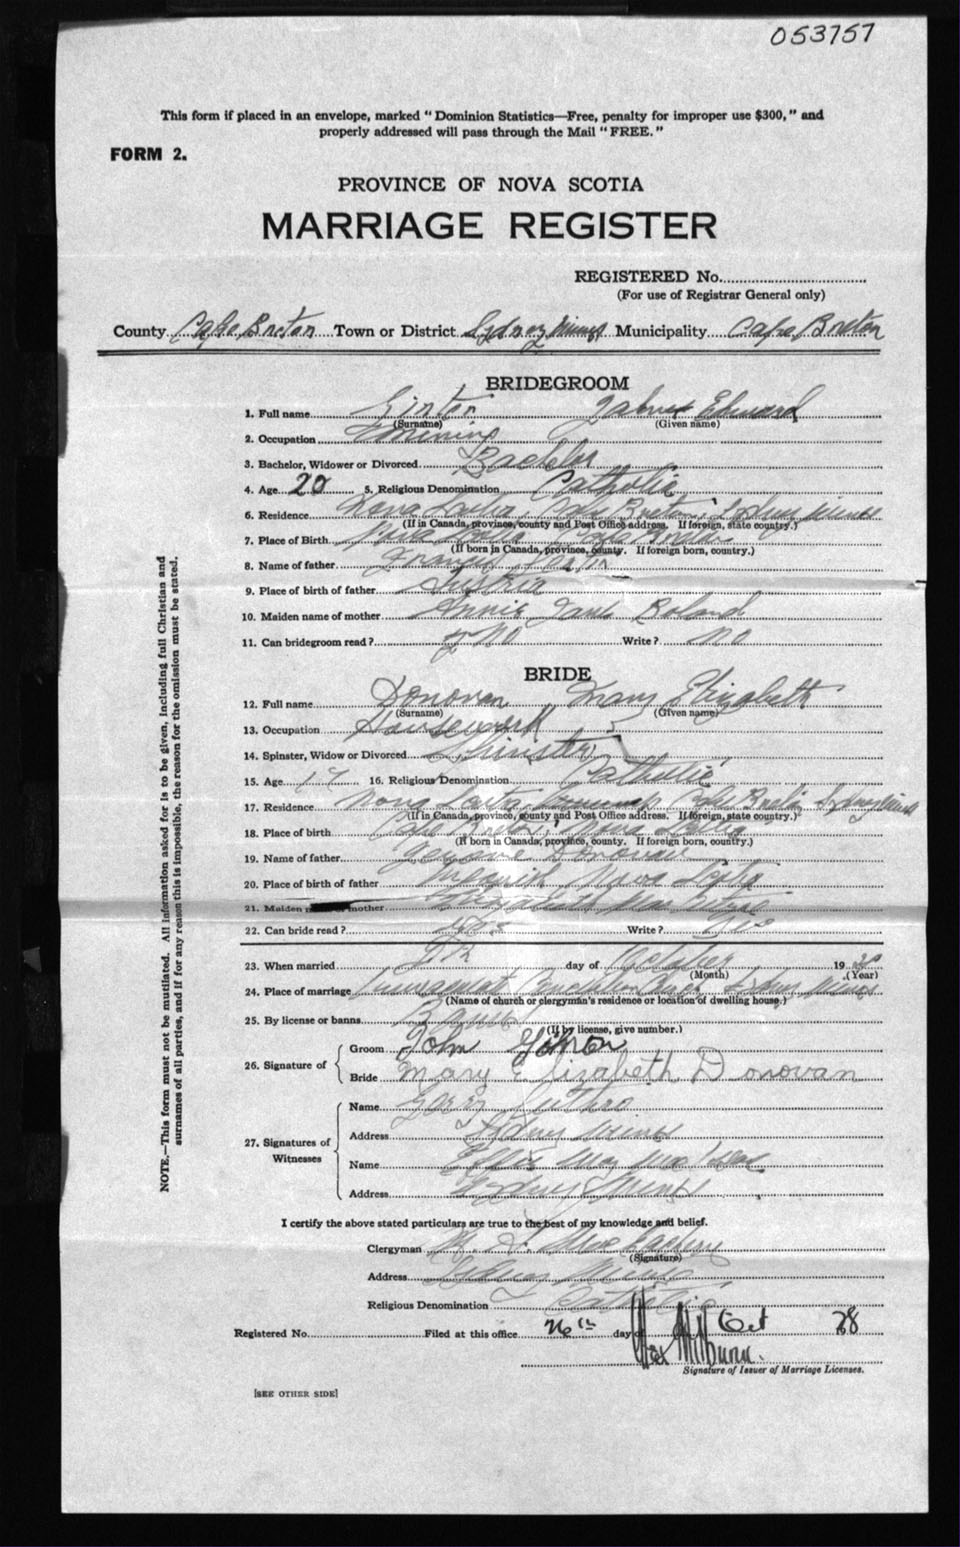 053757
This form if placed in an envelope, marked "Dominion Statistics—Free, penalty for improper use $300," and
properly addressed will pass through the Mail "FREE."
FORM 2.
PROVINCE OF NOVA SCOTIA
MARRIAGE REGISTER
REGISTERED No.
(For use of Registrar General only)
County Cape Breton Town or District Sydney Mines Municipality Cape Breton
BRIDEGROOM
1. Full name Edward
(Surname) (Given name)
2. Occupation
3. Bachelor, Widower or Divorced Bachelor
4. Age 20 5. Religious Denomination Catholic
6. Residence Nova Scotia, Cape Breton, Sydney Mines
(If in Canada, province, county and Post Office address. If foreign, state country.)
7. Place of Birth Nova Scotia Cape Breton
(If born in Canada, province, county. If foreign born, country.)
8. Name of father Francis
9. Place of birth of father Austria
10. Maiden name of mother Annie Jane Boland
11. Can bridegroom read? No Write? No
BRIDE
12. Full name Donovan Mary Elizabeth
(Surname) (Given name)
13. Occupation Housework
14. Spinster, Widow or Divorced Spinster
15. Age 17 16. Religious Denomination Catholic
17. Residence Nova Scotia Cape Breton Sydney Mines
(If in Canada, province, county and Post Office address. If foreign, state country.)
18. Place of birth Cape Breton, Nova Scotia
(If born in Canada, province, county. If foreign born, country.)
19. Name of father Donovan
20. Place of birth of father Nova Scotia
21. Maiden mother Elizabeth
22. Can bride read? Yes Write? Yes
23. When married day of October 19
(Month) (Year)
24. Place of marriage Immaculate Conception Church Sydney Mines
(Name of church or clergyman's residence or location of dwelling house.)
25. By license or banns Banns
(If by license, give number.)
26. Signature of Groom John
Bride Mary Elizabeth Donovan
27. Signatures of Witnesses
Name
Address Sydney Mines
Name Effie May
Address Sydney Mines
I certify the above stated particulars are true to the best of my knowledge and belief.
Clergyman
(Signature)
Address Sydney Mines
Religious Denomination Catholic
Registered No. Filed at this office 26th day Oct 28
Signature of Issuer of Marriage Licenses.
[SEE OTHER SIDE]
NOTE.—This form must not be mutilated. All information asked for is to be given, including full Christian and
surnames of all parties, and if for any reason this is impossible, the reason for the omission must be stated.